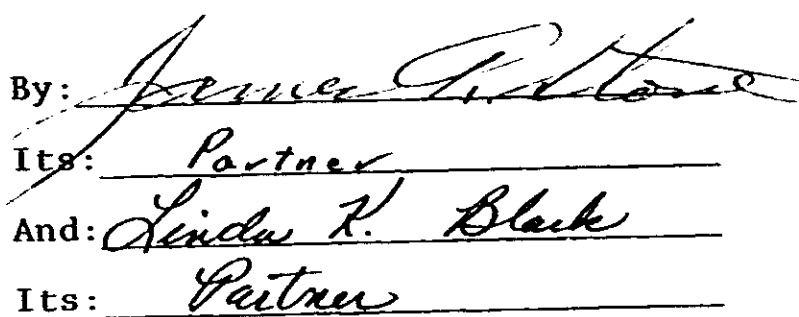 By: James
Its: Partner
And: Linda K. Black
Its: Partner